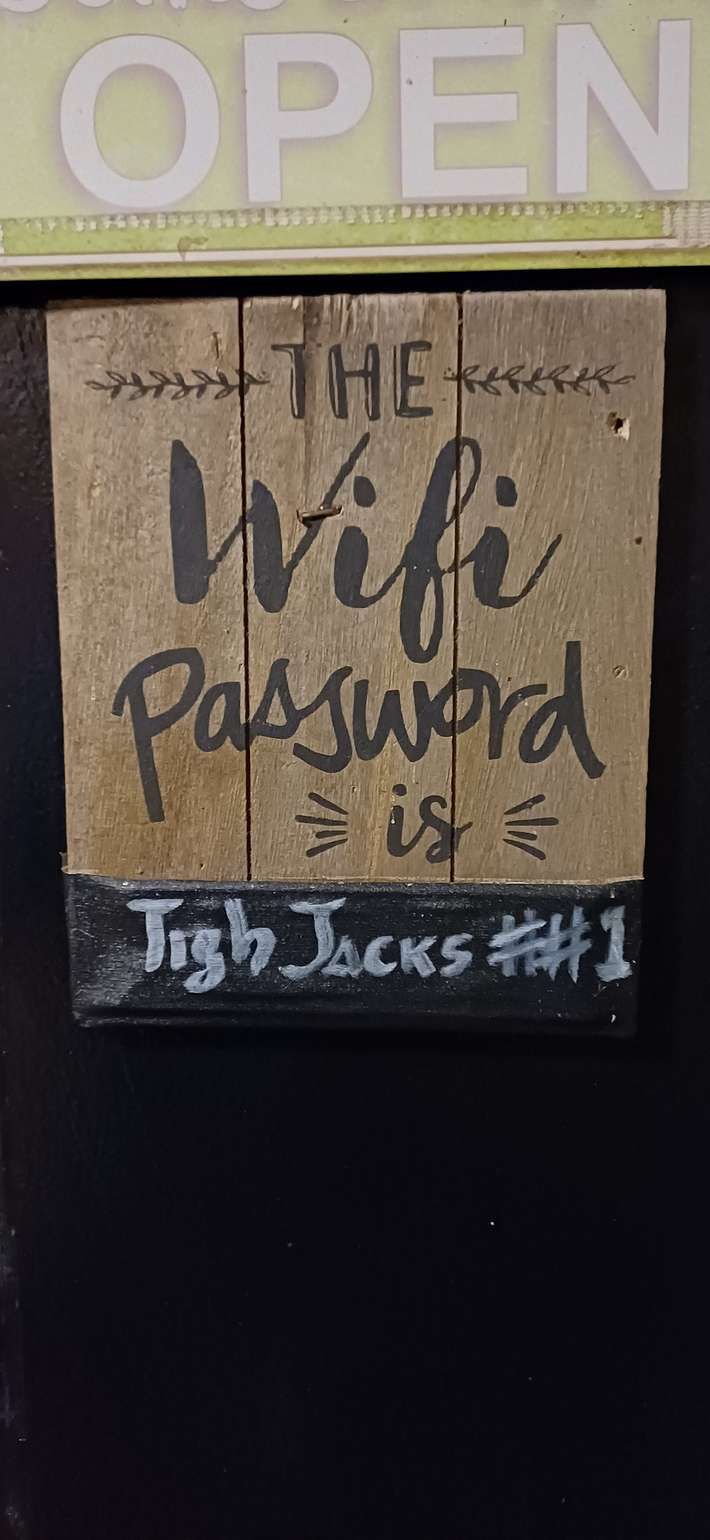 OPEN
THE
Wifi
Password
is
Tigh Jacks ##1